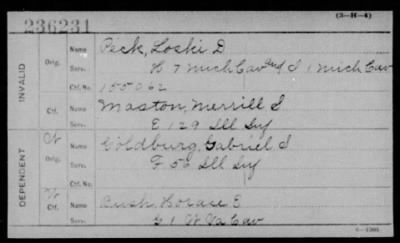 236231
(3-H-4)
INVALID
Orig.
Name Peck, Loski D
Serv. B 7 Mich Cav and I 1 Mich Cav
Ctf. No. 155062
Ctf.
Name Maston, Merrill S
Serv. E 129 Ill Inf
DEPENDENT
Orig.
Name Goldburg, Gabriel S
Serv. F 56 Ill Inf
Ctf. No.
Ctf.
Name Bush, Horace E
Serv. G 1 W Va Cav